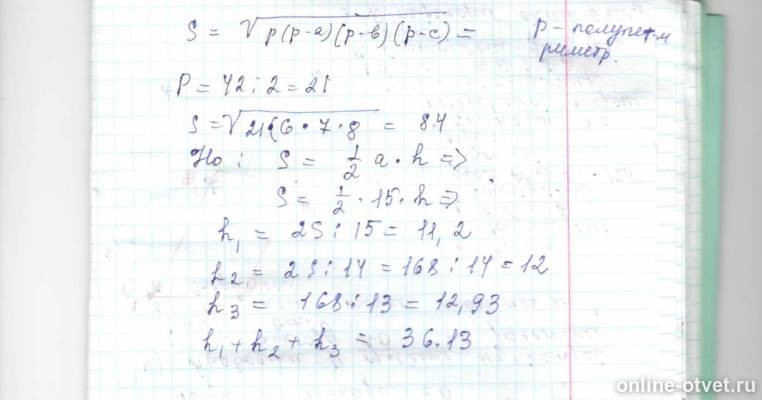 S = √p(p-a)(p-в)(p-c) =
p - полупет.м
риметр.
P = 42 : 2 = 21
S = √21(6 • 7 • 8 = 84
Но : S = 1/2 a • h =>
S = 1/2 • 15 • h =>
h₁ = 2S : 15 = 11,2
h₂ = 2S : 14 = 168 : 14 = 12
h₃ = 168 : 13 = 12,93
h₁ + h₂ + h₃ = 36.13
online-otvet.ru